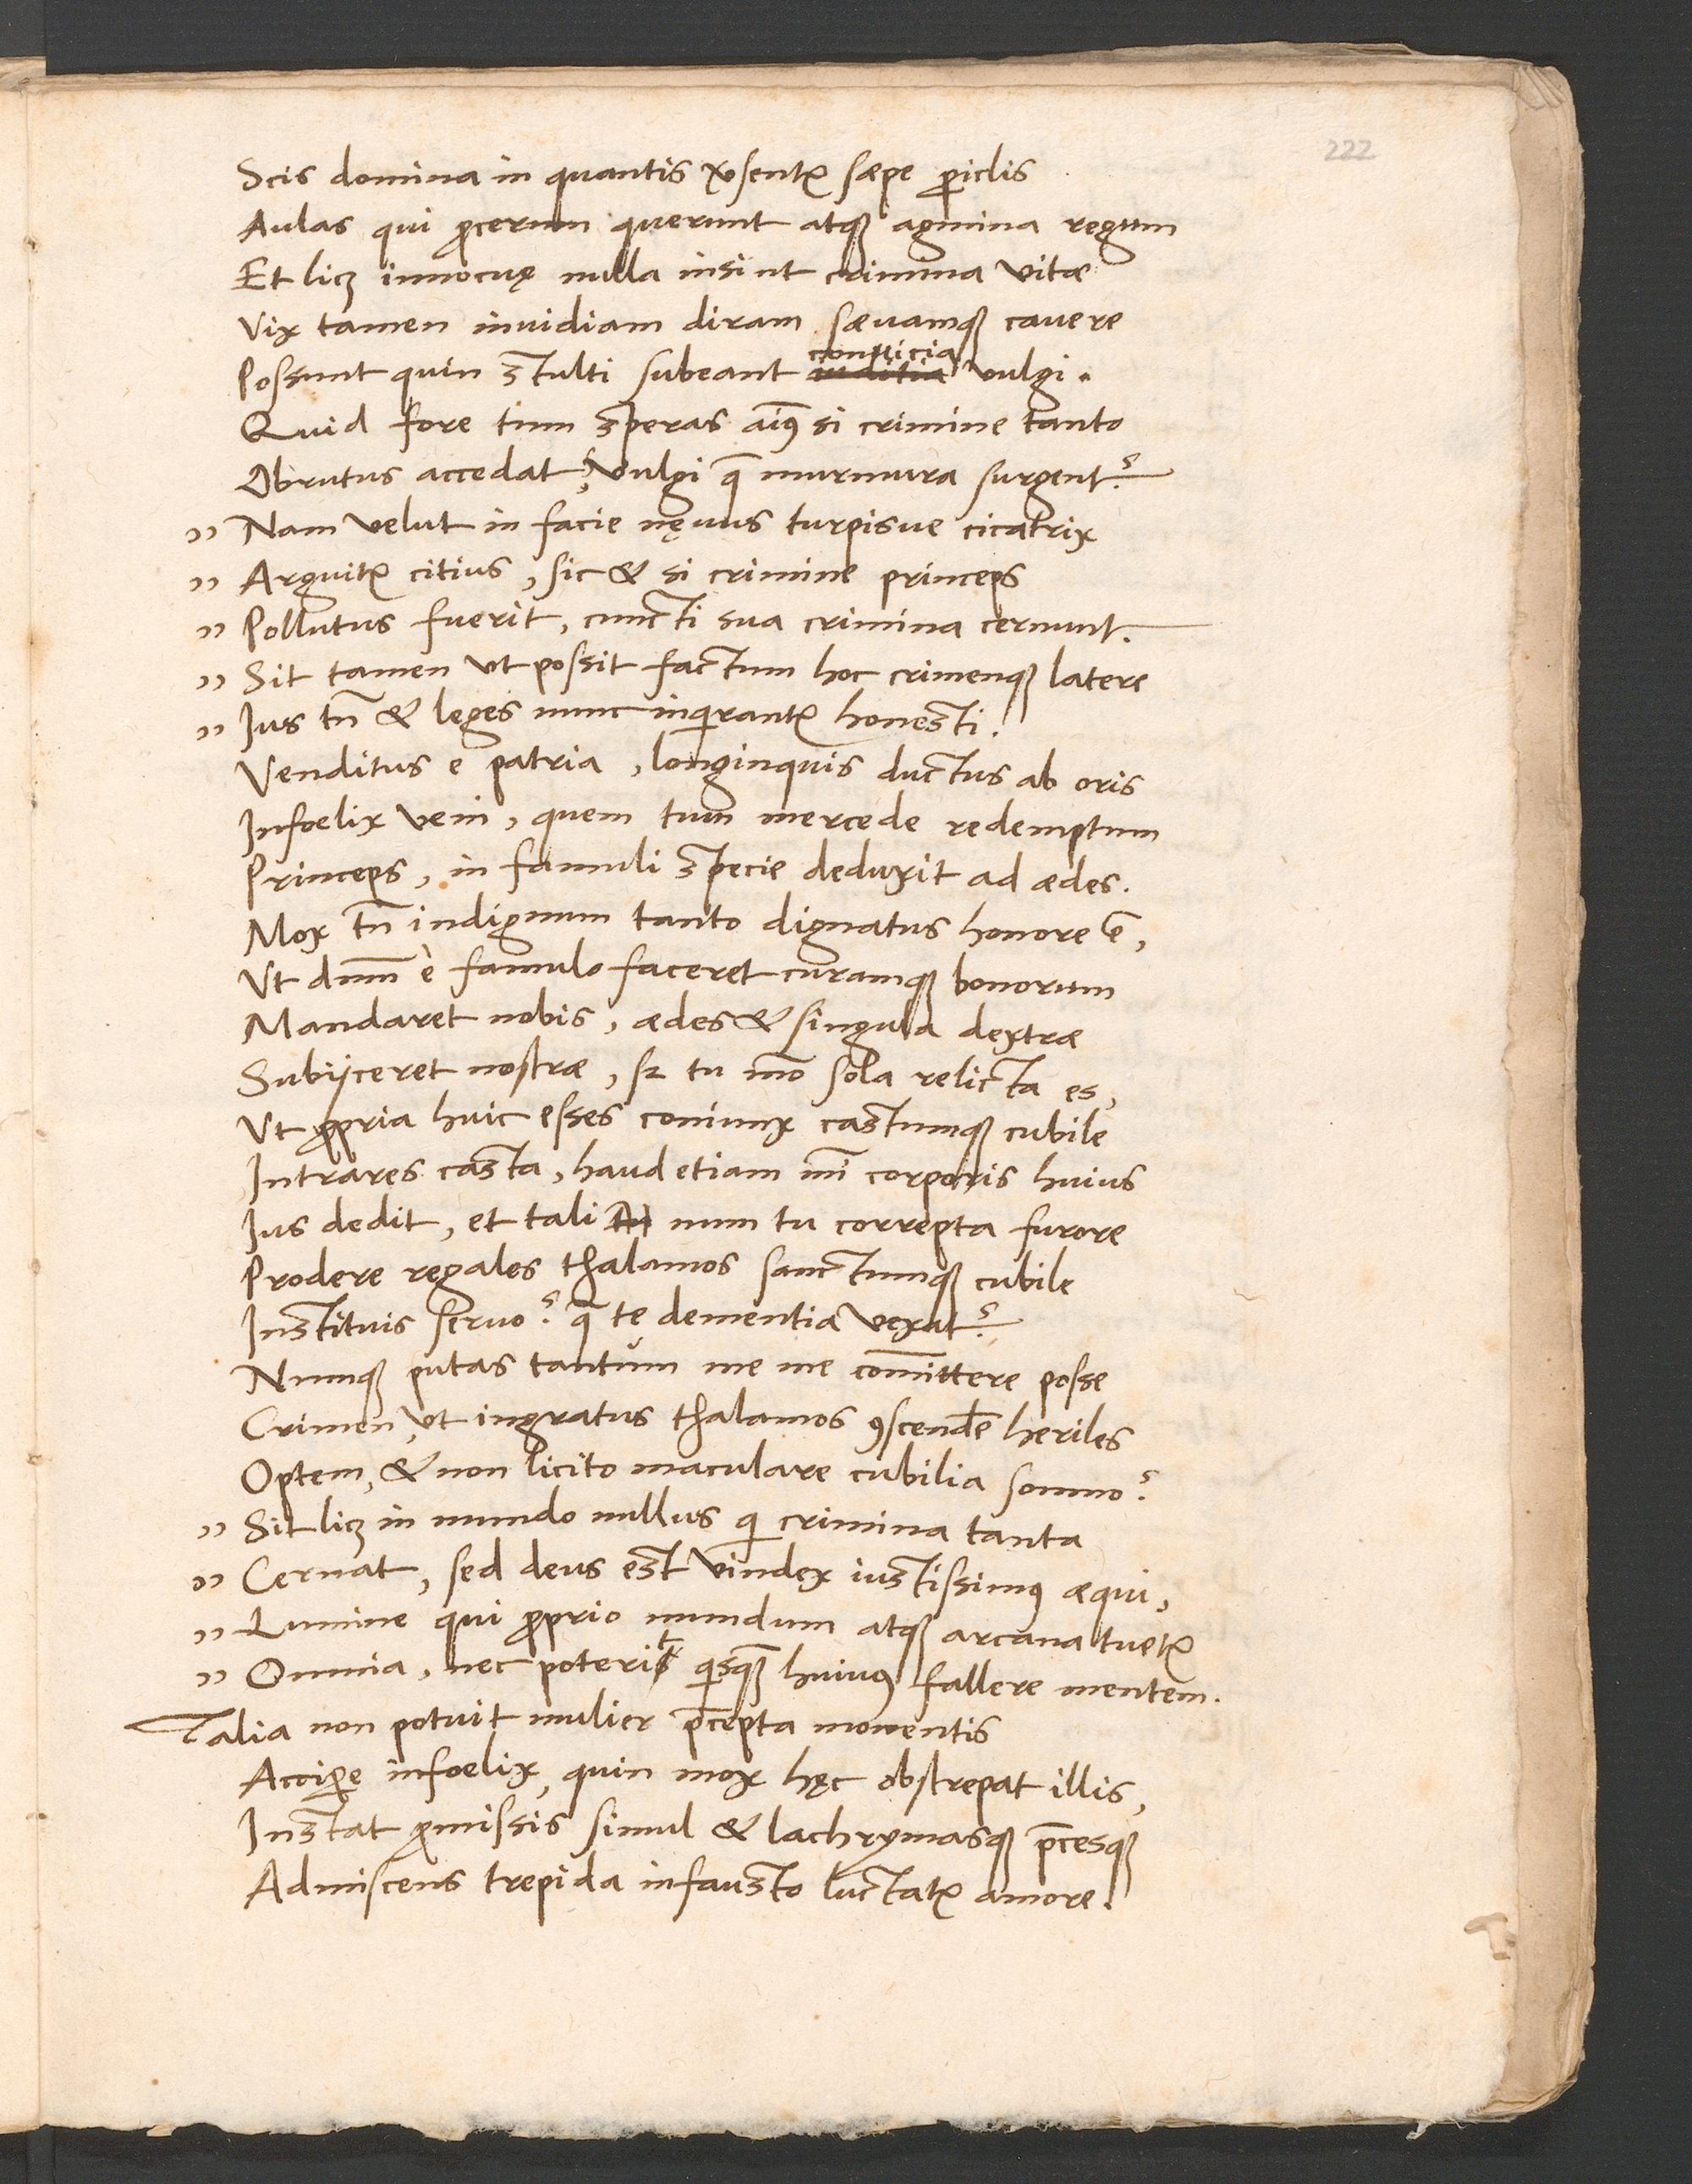 222
Scis domina in quantis v̾sentr̃ sæpe ꝑiclis
Aulas qui ꝓcerum querunt atqꝫ agmina regum
Et licꝫ innocuę nulla insint crimina vitæ
Vix tamen inuidiam diram sæuamqꝫ cauere
conuicia
Possunt quin stulti subeant vulgi.
Quid fore tum speras aiꝰ si crimine tanto
Obrutus accedat, vulgi q̃ murmura surgent?
" Nam velut in facie nęuus turpisue cicatrix
" Arguitr̃ citius, sic & si crimine princeps
" Pollutus fuerit, cuncti sua crimina cernunt.
" Sit tamen ut possit factum hoc crimenqꝫ latere
" Ius tñ & leges nunc inqirantr̃ honesti.
Venditus e patria, longinquis ductus ab oris
Infoelix veni, quem tum mercede redemptum
Princeps, in famuli specie deduxit ad ædes.
Mox tñ indignum tanto dignatus honore ẽ,
Vt dnm̃ è famulo faceret curamqꝫ bonorum
Mandaret nobis, ædes & singula dextræ
Subijceret nostræ, sꝫ tu mõ sola relicta es,
Vt ꝓpria huic esses coniunx castumqꝫ cubile
Intrares casta, haud etiam mĩ corporis huius
Ius dedit, et tali num tu correpta furore
Prodere regales thalamos sanctumqꝫ cubile
Instituis seruo? q̃ te dementia vexat?
Numqꝫ putas tantùm me me com̃ittere posse
Crimen, ut ingratus thalamos ꝯscendẽ heriles
Optem, & non licito maculare cubilia somno?
" Sit licꝫ in mundo nullus qi crimina tanta
" Cernat, sed deus est vindex iustissimꝰ æqui,
" Lumine qui ꝓprio mundum atqꝫ arcana tuetr̃
" Omnia, nec poterit qisqꝫ̃ huiuꝰ fallere mentem.
Talia non potuit mulier p̃cepta monentis
Acciꝑe infoelix, quin mox hęc obstrepat illis,
Instat ꝓmissis simul & lachrymasqꝫ p̃cesqꝫ
Admiscens trepida infausto luctatr̃ amore.